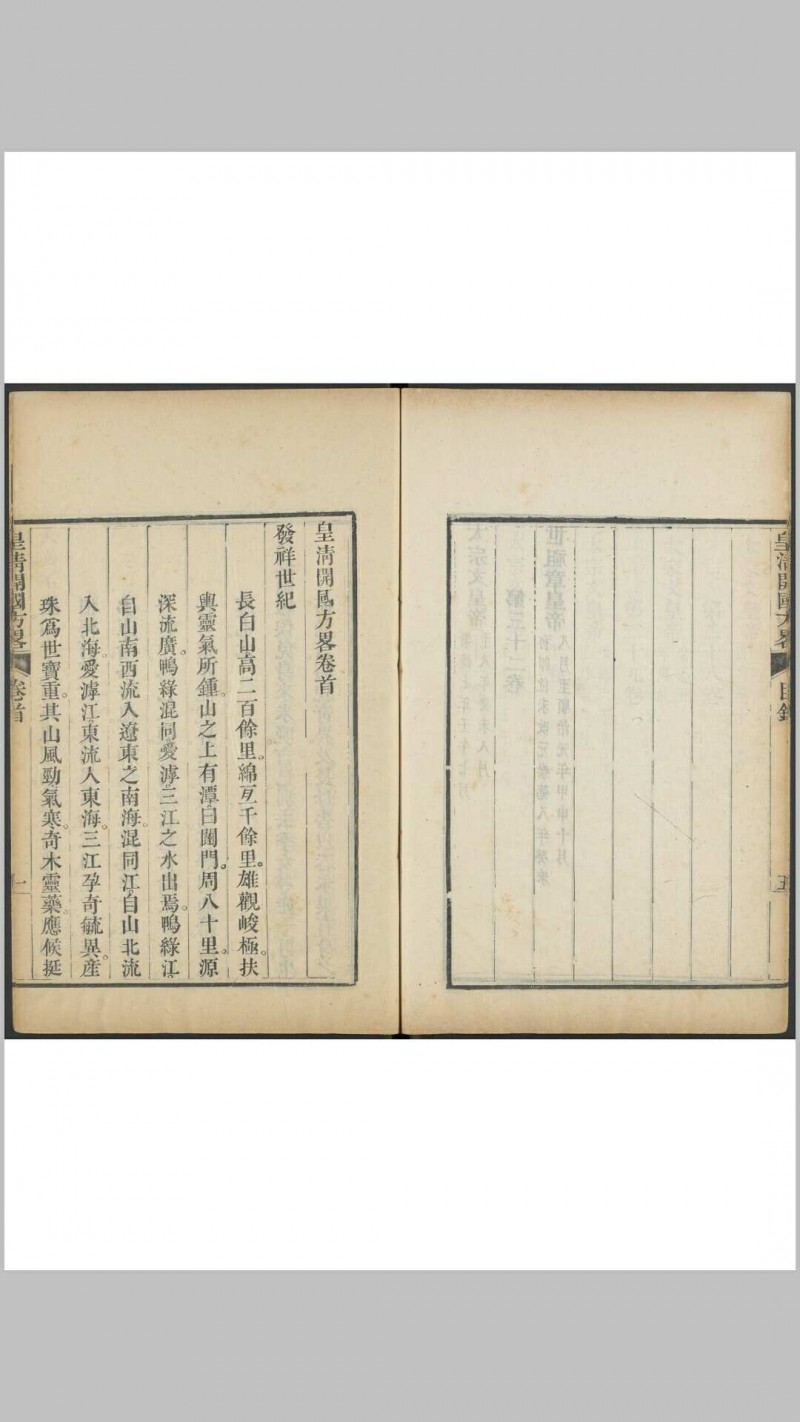 皇清開國方畧 目錄 五
皇清開國方畧卷首
發祥世紀
長白山高二百餘里。綿亙千餘里。雄觀峻極。扶
輿靈氣所鍾。山之上有潭。曰闥門。周八十里。源
深流廣。鴨綠混同愛滹。三江之水出焉。鴨綠江。
自山南西流入遼東之南海。混同江。自山北流
入北海。愛滹江東流入東海。三江孕奇毓異。產
珠爲世寶重。其山風勁氣寒。奇木靈藥。應候挺
皇清開國方畧 卷首 一